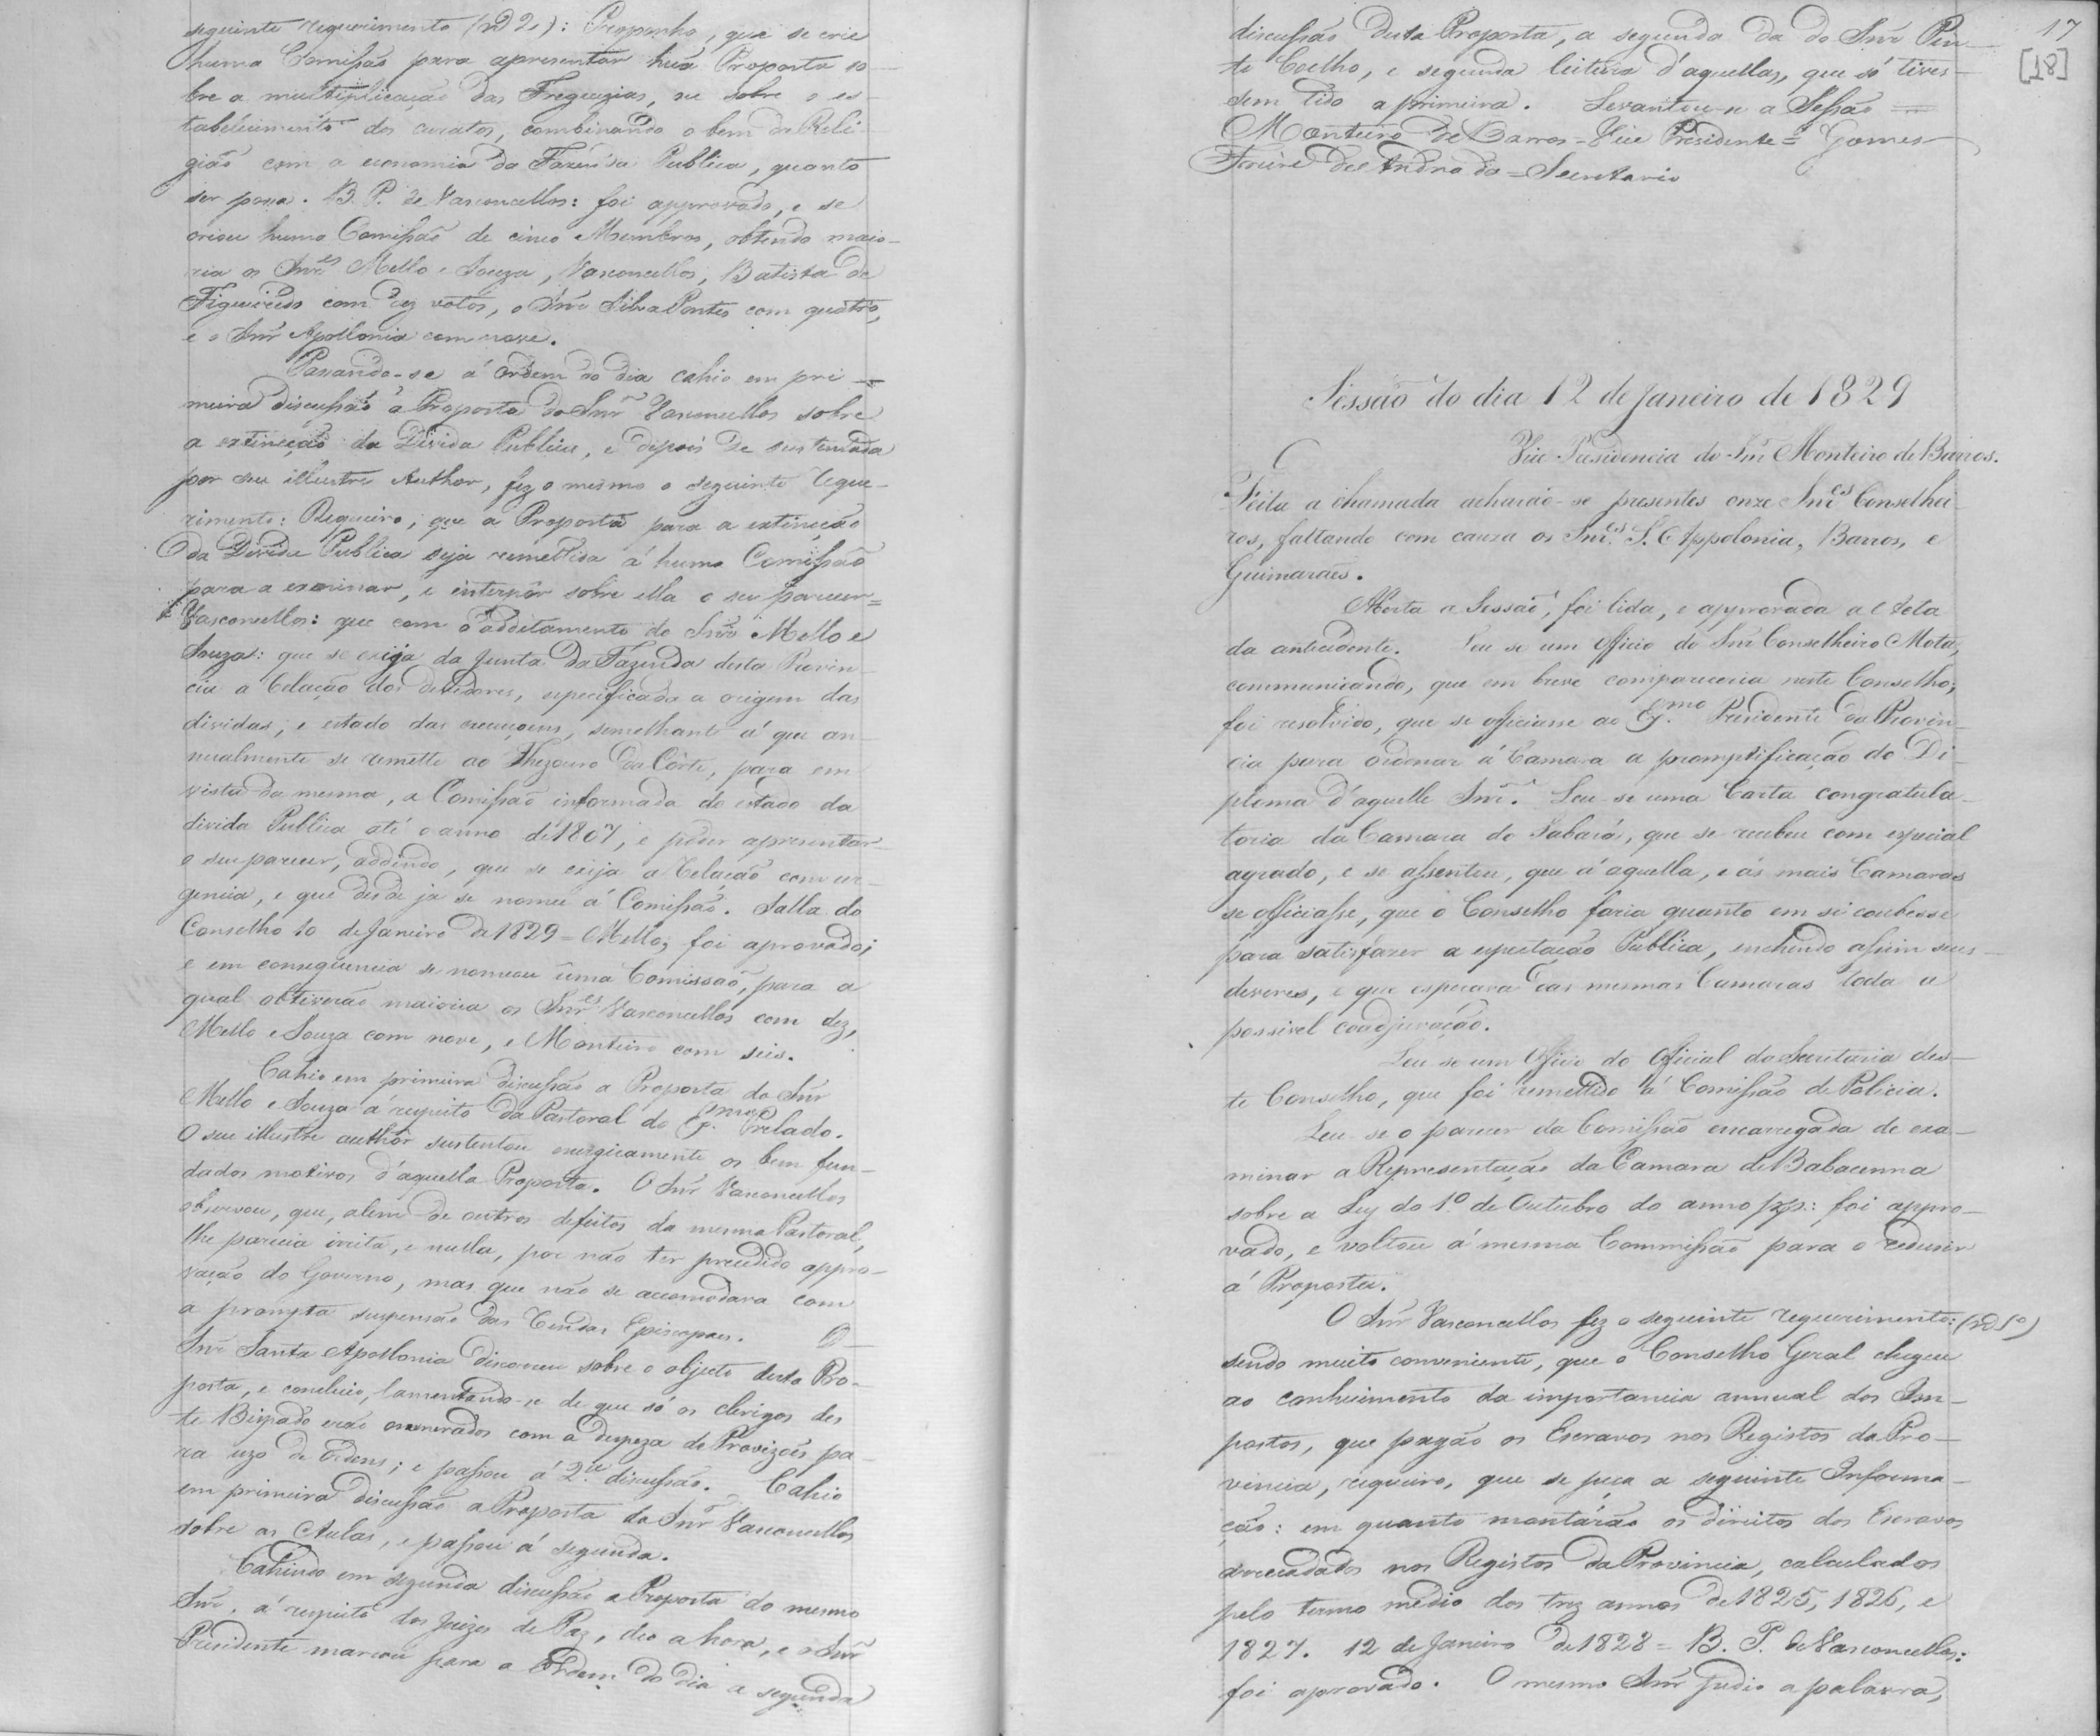 seguinte requerimento (nº 2º): Proponho, que se crie
huma Comissão para apresentar huã Proposta so-
bre a multiplicação das Freguezias, ou sobre o es-
tabelecimento dos curatos, combinando o bem da Reli-
gião com a economia da Fazenda Publica, quanto
ser possa. B. P. de Vasconcellos: foi approvado, e se
criou huma Comissão de cinco Membros, obtendo maio-
ria os Snr.es Mello e Souza, Vasconcellos, Batista de
Figueiredo com dez votos, o Snr Silva Pontes com quatro,
e o Snr Apollonia com nove.
Passando-se á ordem do dia cahio em pri-
meira discussão a Proposta do Snr Vasconcellos sobre
a extincção da Divida Publica, e depois de sustentada
por seu illustre Author, fez o mesmo o seguinte reque-
rimento: Requeiro, que a Proposta para a extincção
da Divida Publica seja remettida á huma Comissão
para a examinar, e interpôr sobre ella o seu parecer=
Vasconcellos: que com o additamento do Snr Mello e
Souza: que se exija da Junta da Fazenda desta Provin-
cia a relação dos devedores, especificada a origem das
dividas, e estado das execuçoens, semelhante á que an-
nualmente se remette ao Thezouro da Côrte, para em
vista da mesma, a Comissão informada do estado da
divida Publica até o anno de 1807, e poder apresentar
o seu parecer, addindo, que se exija a relação com ur-
gencia, e que desde ja se nomeie á Comissão. Salla do
Conselho 10 de Janeiro de 1829 = Mello, foi aprovado;
e em consequencia se nomeou uma Comissão, para a
qual obtiverão maioria os Snr.es Vasconcellos com dez,
Mello e Souza com nove, e Monteiro com seis.
Cahio em primeira discussão a Proposta do Snr
Mello e Souza á respeito da Pastoral do Ex.mo Prelado.
O seu illustre author sustentou energicamente os bem fun-
dados motivos d'aquella Proposta. O Snr Vasconcellos
observou, que, alem de outros defeitos da mesma Pastoral,
lhe parecia irrita, e nulla, por não ter precedido appro-
vação do Governo, mas que não se accomodava com
a prompta suspensão das rendas Episcopaes. O
Snr Santa Apollonia discorreu sobre o objecto desta Pro-
posta, e concluio, lamentando-se de que só os clerigos des
te Bispado erão onnerados com a despeza de Provizões pa-
ra uzo de Ordens; e passou á 2.ª discussão. Cahio
em primeira discussão a Proposta do Snr Vasconcellos
sobre as Aulas, e passou á segunda.
Cahindo em segunda discussão a Proposta do mesmo
Snr. á respeito dos Juizes de Paz, deo a hora, e o Snr
Presidente marcou para a Ordem do dia a segunda
17
[18]
discussão desta Proposta, a segunda da do Snr Pin-
to Coelho, e segunda leitura d'aquellas, que só tives-
sem tido a primeira. Levantou-se a Sessão =
Monteiro de Barros = Vice Presidente = Gomes
Freire de Andrada = Secretario
Sessão do dia 12 de Janeiro de 1829
Vice Presidencia do Snr Monteiro de Barros.
Feita a chamada acharão-se presentes onze Snr.es Conselhei-
ros, faltando com cauza os Snr.es S. Appolonia, Barros, e
Guimaraes.
Aberta a Sessão, foi lida, e approvada a Acta
da antecedente. Leu se um Officio do Snr Conselheiro Mota,
communicando, que em breve compareceria neste Conselho;
foi resolvido, que se officiasse ao Ex.mo Presidente da Provin-
cia para ordenar á Camara a promptificação do Di-
ploma d'aquelle Snr. Leu-se uma Carta congratula-
toria da Camara do Sabará, que se recebeu com especial
agrado, e se assentou, que á aquella, e ás mais Camaras
se officiasse, que o Conselho faria quanto em si coubesse
para satisfazer a espectação Publica, enchendo assim seus
deveres, e que esperava das mesmas Camaras toda a
possivel coadjuvação.
Leu se um Officio do Official da Secretaria des-
te Conselho, que foi remettido á Comissão de Policia.
Leu-se o parecer da Comissão encarregada de exa-
minar a Representação da Camara de Babacenna
sobre a Ley do 1.º de Outubro do anno pp.: foi appro-
vado, e voltou á mesma Commissão para o redusir
á Proposta.
O Snr Vasconcellos fez o seguinte requerimento: (nº 1º)
sendo muito conveniente, que o Conselho Geral chegue
ao conhecimento da importancia annual dos Im-
postos, que pagão os Escravos nos Registos da Pro-
vincia, requeiro, que se peça a seguinte Informa-
ção: em quanto montárão os direitos dos Escravos
arrecadados nos Registos da Provincia, calculados
pelo termo médio dos trez annos de 1825, 1826, e
1827. 12 de Janeiro de 1828 = B. P. de Vasconcellos:
foi aprovado. O mesmo Snr pedio a palavra,